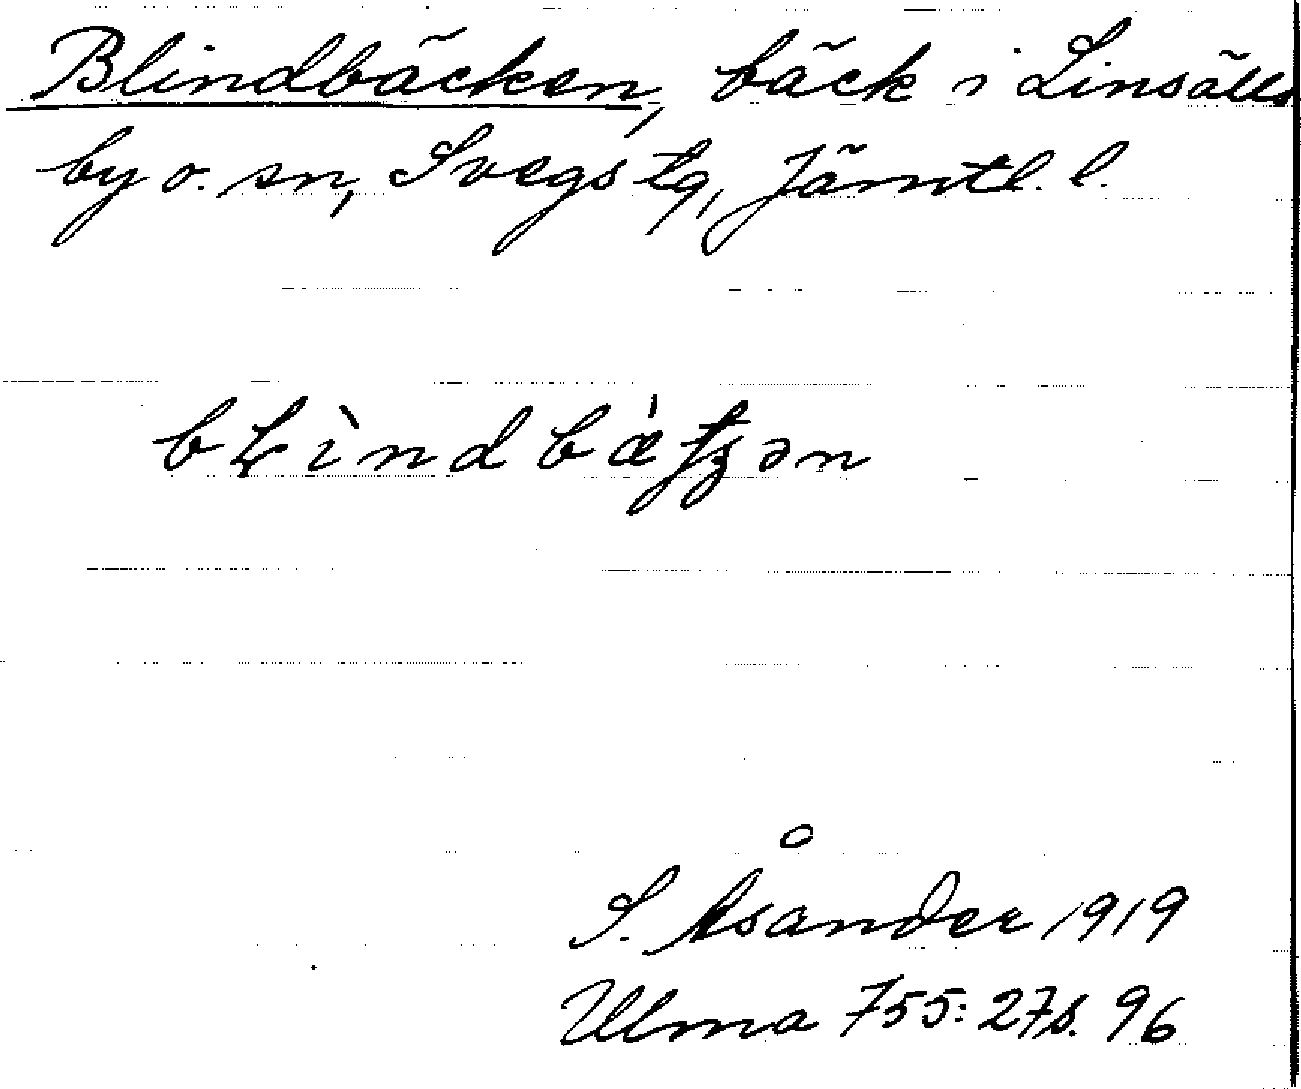 Blindbäcken, bäck i Linsälls
by o. sn, Svegs tg, Jämtl. l.
S. Åsander 1919
Ulma 755: 27 s. 96